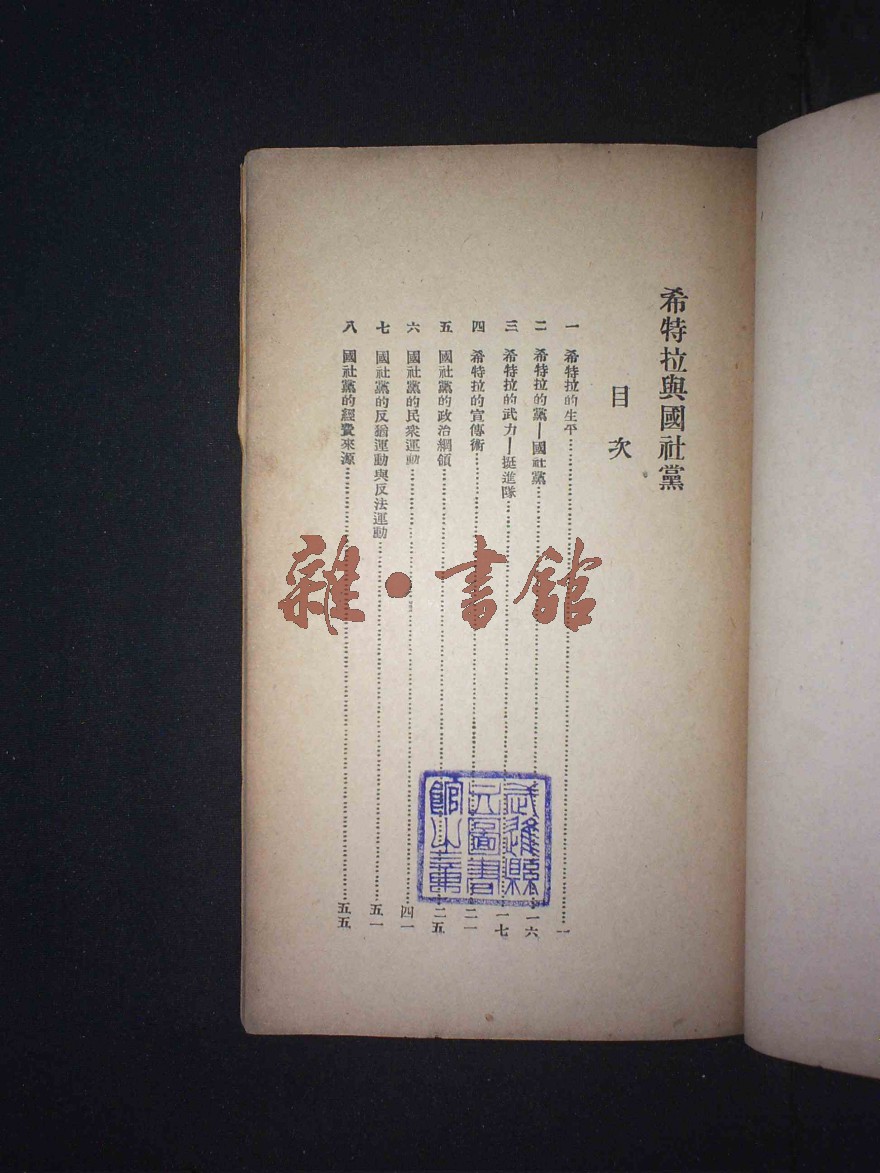 希特拉與國社黨
目次
一 希特拉的生平……一
二 希特拉的黨—國社黨……一六
三 希特拉的武力—挺進隊……一七
四 希特拉的宣傳術……二一
五 國社黨的政治綱領……二五
六 國社黨的民衆運動……四一
七 國社黨的反猶運動與反法運動……五一
八 國社黨的經費來源……五五
雜·書館
武進縣
立圖書
館之章